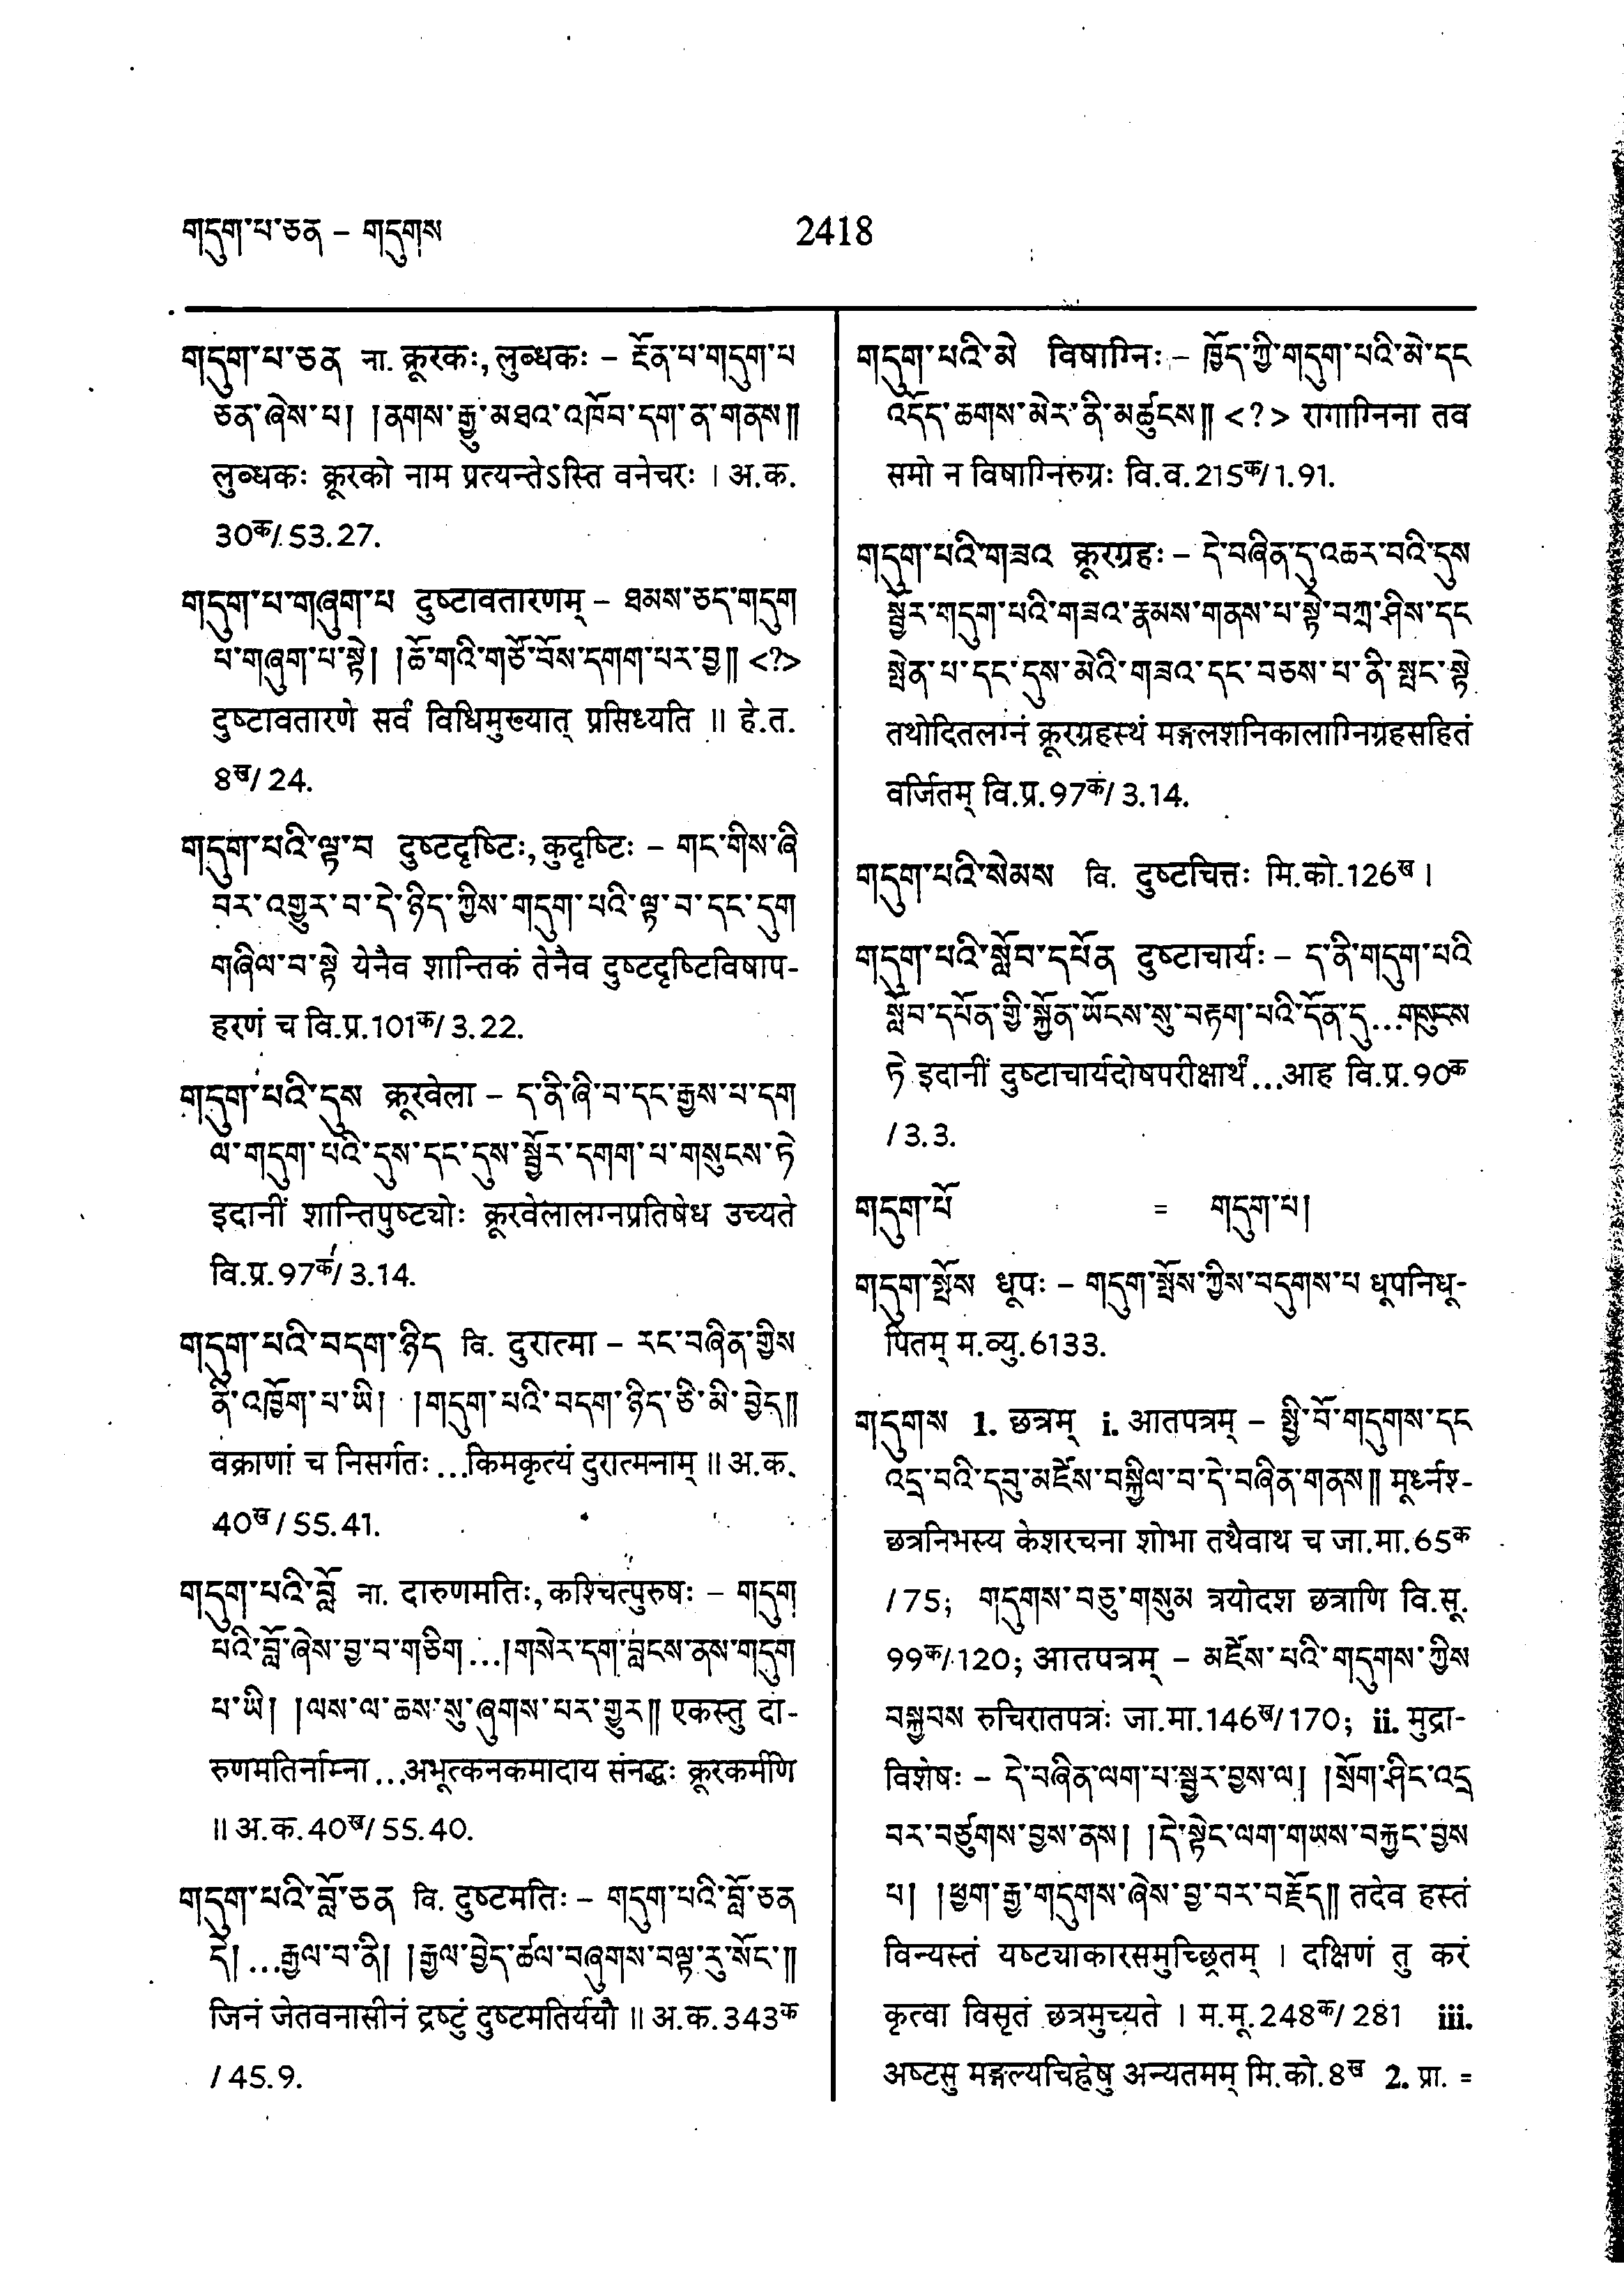 གདུག་པ་ཅན – གདུགས
2418
གདུག་པ་ཅན ना. क्रूरकः, लुब्धकः – རྔོན་པ་གདུག་པ
ཅན་ཞེས་པ། །ནགས་རྒྱུ་མཐའ་འཁོབ་དག་ན་གནས༎
लुब्धकः क्रूरको नाम प्रत्यन्तेऽस्ति वनेचरः । अ.क.
30क/53.27.
གདུག་པ་གཞུག་པ दुष्टावतारणम् – ཐམས་ཅད་གདུག
པ་གཞུག་པ་སྟེ། །ཆོ་གའི་གཙོ་བོས་དགག་པར་བྱ༎ <?>
दुष्टावतारणे सर्वं विधिमुख्यात् प्रसिध्यति ॥ हे.त.
8ख/24.
གདུག་པའི་ལྟ་བ दुष्टदृष्टिः, कुदृष्टिः – གང་གིས་ཞི
བར་འགྱུར་བ་དེ་ཉིད་ཀྱིས་གདུག་པའི་ལྟ་བ་དང་དུག
གཞིལ་བ་སྟེ येनैव शान्तिकं तेनैव दुष्टदृष्टिविषाप-
हरणं च वि.प्र.101क/3.22.
གདུག་པའི་དུས क्रूरवेला – ད་ནི་ཞི་བ་དང་རྒྱས་པ་དག
ལ་གདུག་པའི་དུས་དང་དུས་སྦྱོར་དགག་པ་གསུངས་ཏེ
इदानीं शान्तिपुष्ट्योः क्रूरवेलालग्नप्रतिषेध उच्यते
वि.प्र.97क/3.14.
གདུག་པའི་བདག་ཉིད वि. दुरात्मा – རང་བཞིན་གྱིས
ནི་འཁྱོག་པ་ཡི། །གདུག་པའི་བདག་ཉིད་ཅི་མི་བྱེད༎
वक्राणां च निसर्गतः ...किमकृत्यं दुरात्मनाम् ॥ अ.क.
40ख/55.41.
གདུག་པའི་བློ ना. दारुणमतिः, कश्चित्पुरुषः – གདུག
པའི་བློ་ཞེས་བྱ་བ་གཅིག ...།གསེར་དག་བླངས་ནས་གདུག
པ་ཡི། །ལས་ལ་ཆས་སུ་ཞུགས་པར་གྱུར༎ एकस्तु दा-
रुणमतिर्नाम्ना ...अभूत्कनकमादाय संनद्धः क्रूरकर्मणि
॥ अ.क.40ख/55.40.
གདུག་པའི་བློ་ཅན वि. दुष्टमतिः – གདུག་པའི་བློ་ཅན
དེ། ...རྒྱལ་བ་ནི། །རྒྱལ་བྱེད་ཚལ་བཞུགས་བལྟ་རུ་སོང་༎
जिनं जेतवनासीनं द्रष्टुं दुष्टमतिर्ययौ ॥ अ.क.343क
/45.9.
གདུག་པའི་མེ विषाग्निः – ཁྱོད་ཀྱི་གདུག་པའི་མེ་དང
འདོད་ཆགས་མེར་ནི་མཚུངས༎ <?> रागाग्निना तव
समो न विषाग्निरुग्रः वि.व.215क/1.91.
གདུག་པའི་གཟའ क्रूरग्रहः – དེ་བཞིན་དུ་འཆར་བའི་དུས
སྦྱོར་གདུག་པའི་གཟའ་རྣམས་གནས་པ་སྟེ་བཀྲ་ཤིས་དང
སྤེན་པ་དང་དུས་མེའི་གཟའ་དང་བཅས་པ་ནི་སྤང་སྟེ
तथोदितलग्नं क्रूरग्रहस्थं मङ्गलशनिकालाग्निग्रहसहितं
वर्जितम् वि.प्र.97क/3.14.
གདུག་པའི་སེམས वि. दुष्टचित्तः मि.को.126ख ।
གདུག་པའི་སློབ་དཔོན दुष्टाचार्यः – ད་ནི་གདུག་པའི
སློབ་དཔོན་གྱི་སྐྱོན་ཡོངས་སུ་བརྟག་པའི་དོན་དུ...གསུངས
ཏེ इदानीं दुष्टाचार्यदोषपरीक्षार्थं...आह वि.प्र.90क
/3.3.
གདུག་པོ = གདུག་པ།
གདུག་སྤོས धूपः – གདུག་སྤོས་ཀྱིས་བདུགས་པ धूपनिधू-
पितम् म.व्यु.6133.
གདུགས 1. छत्रम् i. आतपत्रम् – སྤྱི་བོ་གདུགས་དང
འདྲ་བའི་དབུ་མཛེས་བསྐྱིལ་བ་དེ་བཞིན་གནས༎ मूर्ध्नश्-
छत्रनिभस्य केशरचना शोभा तथैवाथ च जा.मा.65क
/75; གདུགས་བཅུ་གསུམ त्रयोदश छत्राणि वि.सू.
99क/120; आतपत्रम् – མཛེས་པའི་གདུགས་ཀྱིས
བསྐྱབས रुचिरातपत्रः जा.मा.146ख/170; ii. मुद्रा-
विशेषः – དེ་བཞིན་ལག་པ་སྦྱར་བྱས་ལ། །སྲོག་ཤིང་འདྲ
བར་བཙུགས་བྱས་ནས། །དེ་སྟེང་ལག་གཡས་བརྐྱང་བྱས
པ། །ཕྱག་རྒྱ་གདུགས་ཞེས་བྱ་བར་བརྗོད༎ तदेव हस्तं
विन्यस्तं यष्ट्याकारसमुच्छ्रितम् । दक्षिणं तु करं
कृत्वा विसृतं छत्रमुच्यते । म.मू.248क/281 iii.
अष्टसु मङ्गल्यचिह्नेषु अन्यतमम् मि.को.8ख 2. प्रा. =